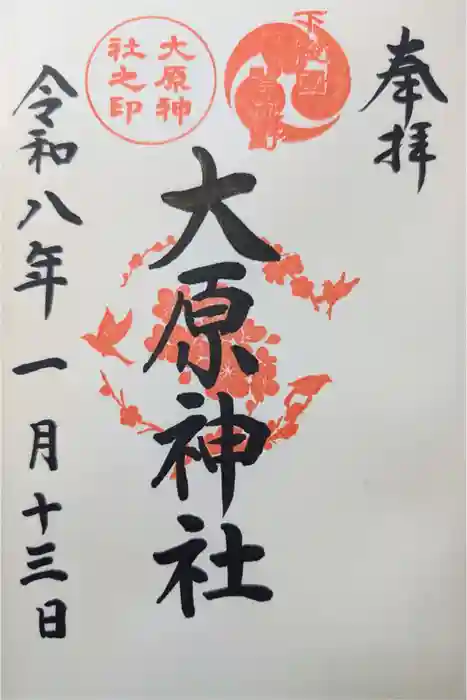 奉拝
下総國
大原神
社之印
大原神社
令和八年一月十三日